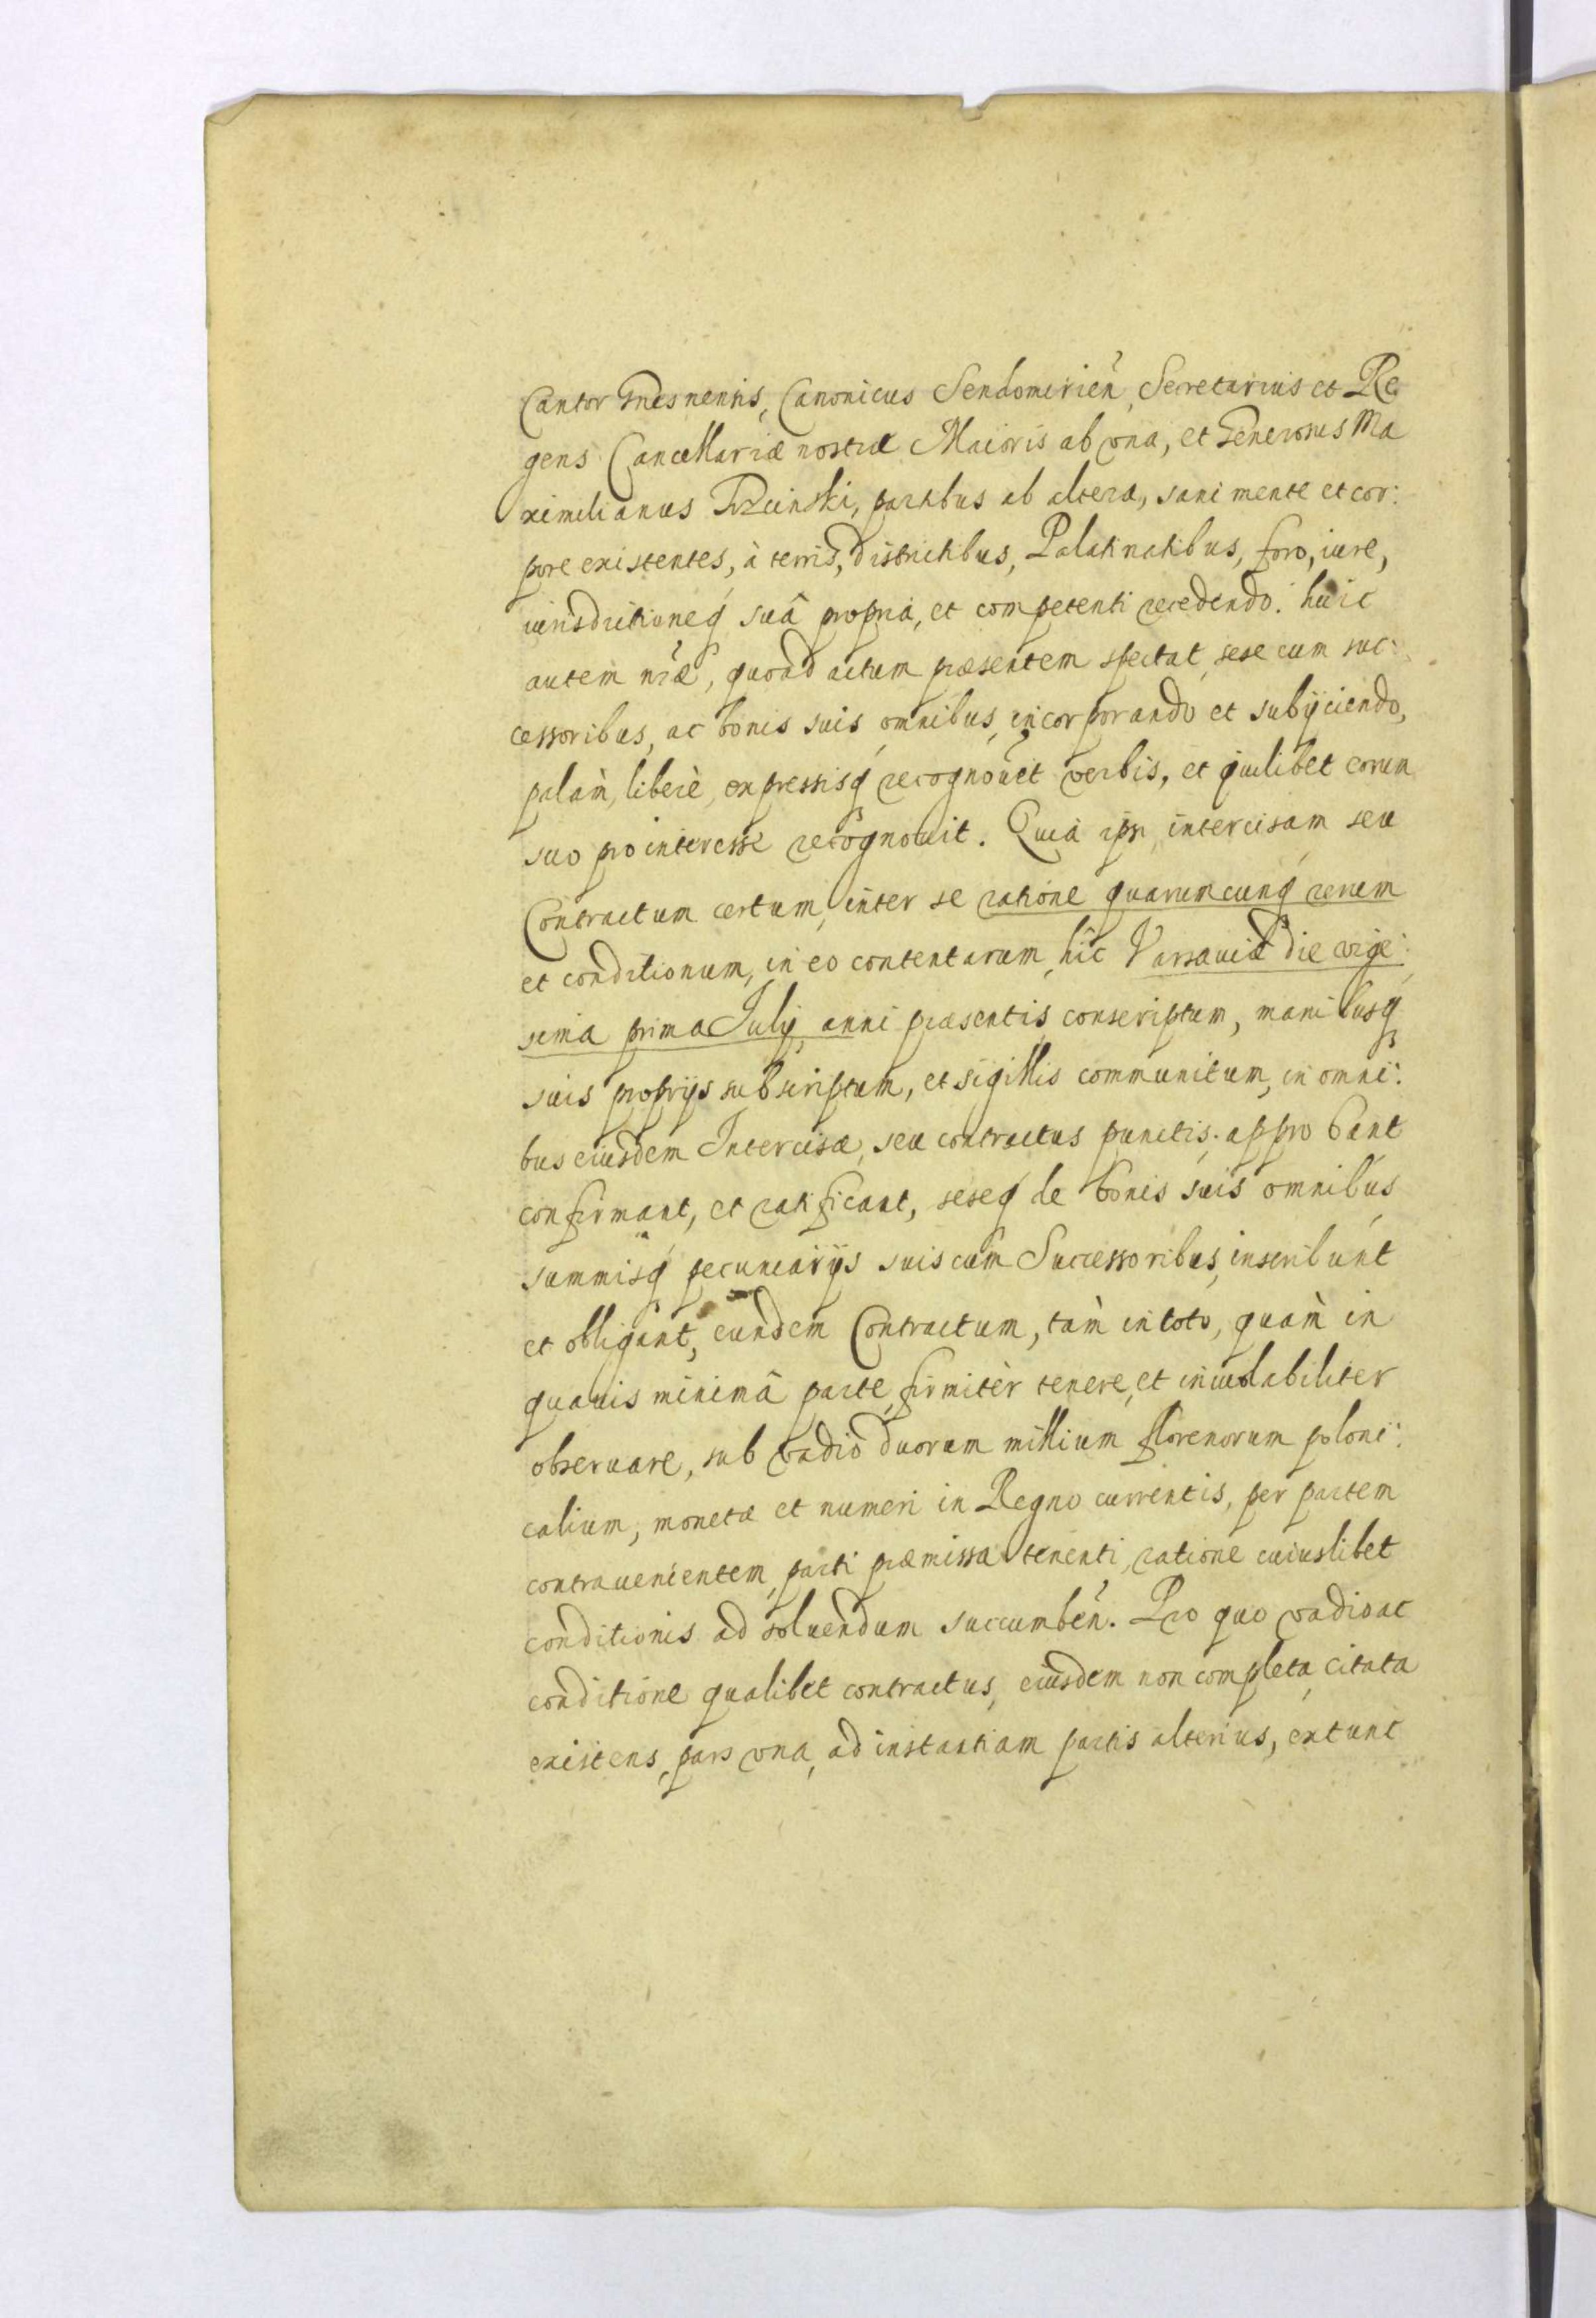 Cantor Gnesnensis, Canonicus Sendomirien̄, Secretarius et Re
gens Cancellariæ nostræ Maioris ab vna, et Generosus Ma
ximilianus partibus ab altera, sani mente et cor:
pore existentes, à terris, districtibus, Palatinatibus, foro, iure,
iurisdictioneq́ suâ propria, et competenti recedendo: huic
autem nr̃æ, quoad actum præsentem spectat, sese cum suc:
cessoribus, ac bonis suis omnibus, incorporando et subijciendo,
palàm, liberè, expressisq́ recognouêt verbis, et quilibet eorum
suo pro interesse recognouit. Quia ipsi intercisam seu
Contractum certum, inter se ratione quarumcunq́ rerum
et conditionum, in eo contentarum, hîc Varsauiæ die vige:
sima prima Iulij anni præsentis conscriptum, manibusq́
suis proprijs subscriptum, et sigillis communitum, in omni:
bus eiusdem Intercisæ, seu contractus punctis. approbant
confirmant, et ratificant, seseq́ de bonis suis omnibus
summisq́ pecuniarijs suis cum Successoribus, inscribunt
et obligant, eundem Contractum, tàm in toto, quàm in
quauis minimâ parte, firmitèr tenere, et inuiolabiliter
obseruare, sub vadio duorum millium florenorum poloni:
calium, monetæ et numeri in Regno currentis, per partem
contrauenientem, parti præmissa tenenti, ratione cuiuslibet
conditionis ad soluendum succumben̄. Pro quo vadio ac
conditione qualibet contractus, eiusdem non completa, citata
existens, pars vna, ad instantiam partis alterius, extunc